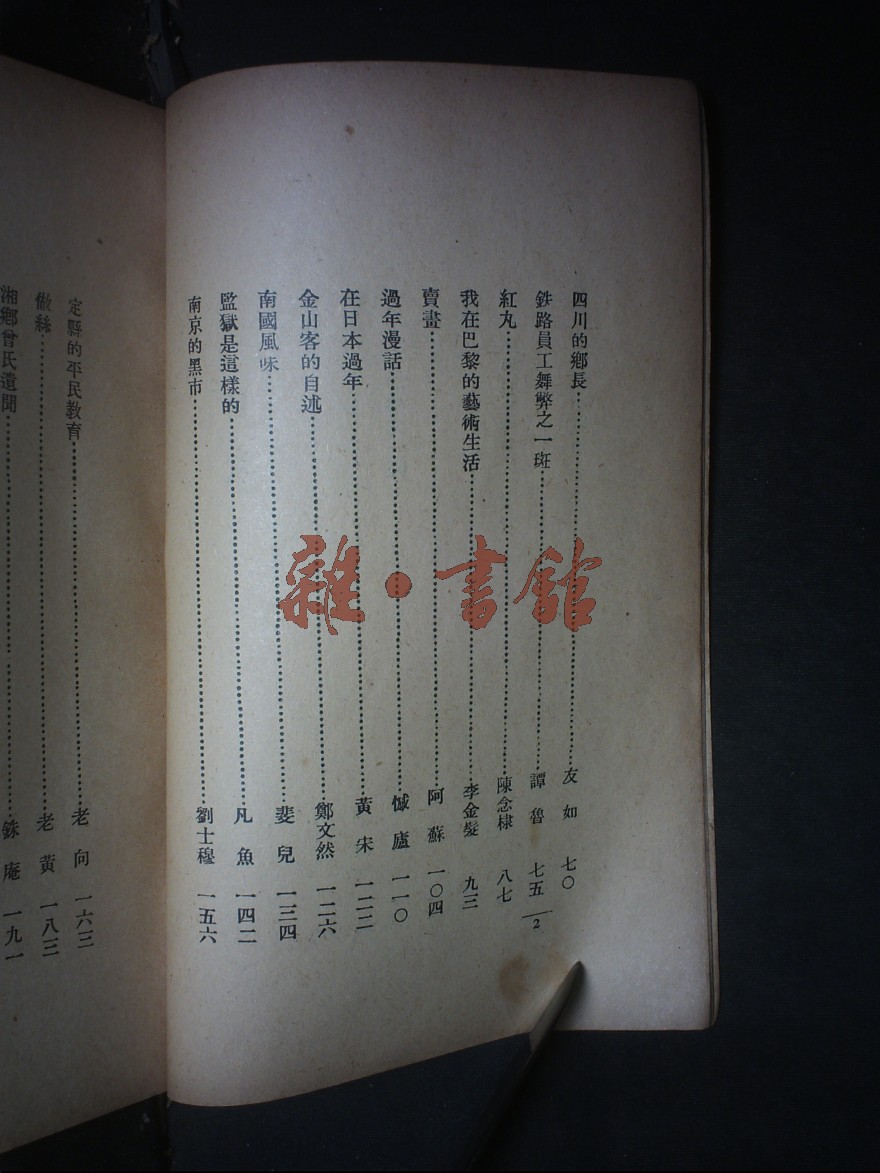 四川的鄉長……友如 七〇
鉄路員工舞弊之一斑……譚魯 七五
紅丸……陳念棣 八七
我在巴黎的藝術生活……李金髮 九三
賣畫……阿蘇 一〇四
過年漫話……憾廬 一一〇
在日本過年……黃宋 一二二
金山客的自述……鄭文然 一二六
南國風味……斐兒 一三四
監獄是這樣的……凡魚 一四二
南京的黑市……劉士穆 一五六
2
定縣的平民教育……老向 一六三
做絲……老黃 一八三
湘鄉曾氏遺聞……銖庵 一九一
雜·書館